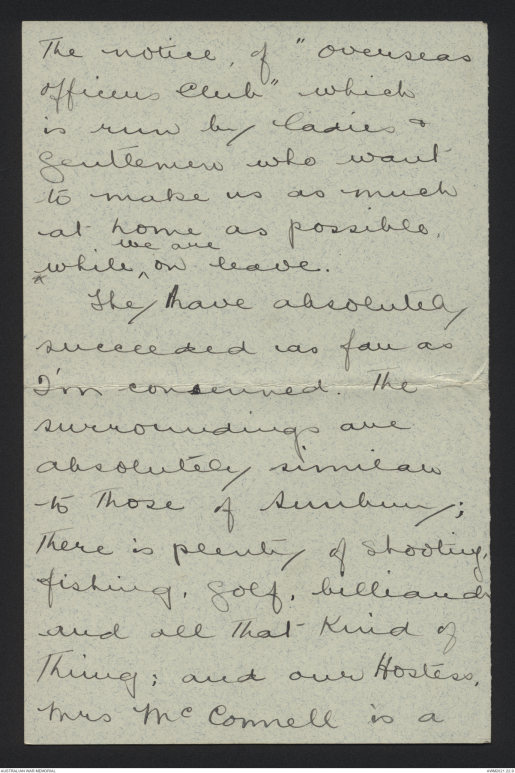 The notice, of "overseas
officers Club" which
is run by ladies &
gentlemen who want
to make us as much
at home as possible,
while ^we are on leave.
They have absolutely
succeeded as far as
I'm concerned. The
surroundings are
absolutely similar
to those of Sunbury;
there is plenty of shooting,
fishing, golf, billiards
and all that kind of
thing; and our Hostess,
Mrs McConnell is a
AUSTRALIAN WAR MEMORIAL